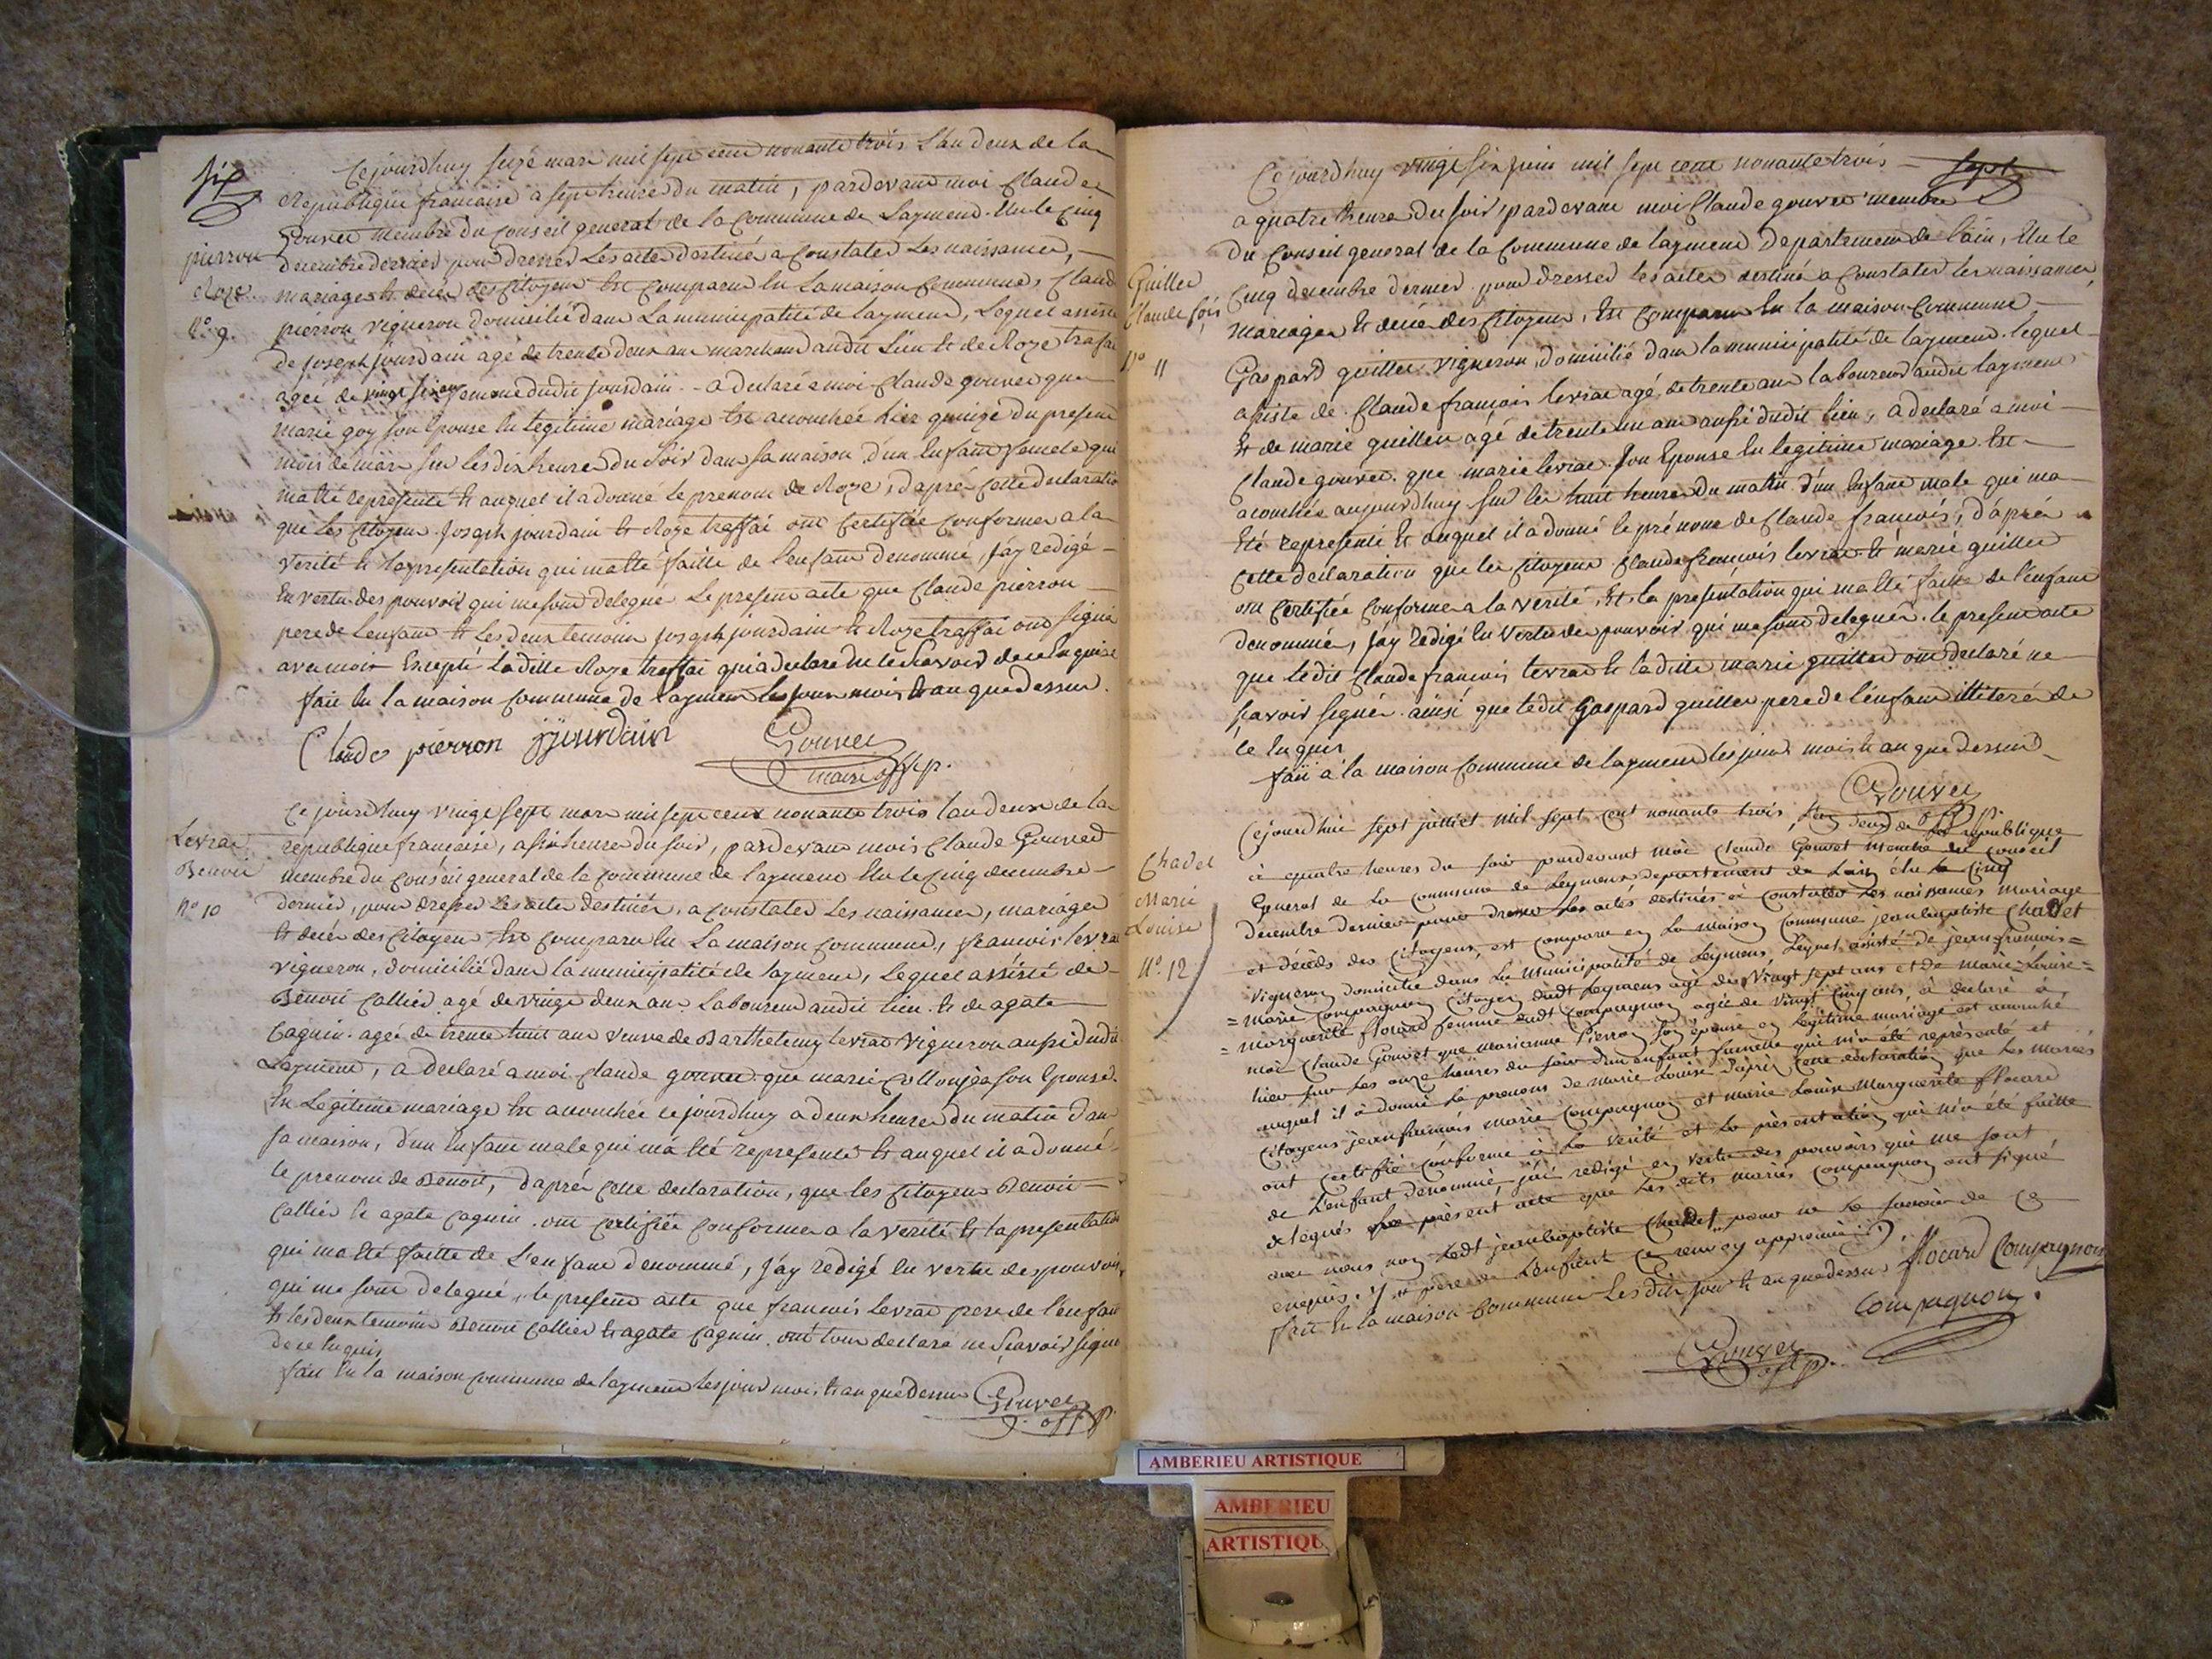 six
pierron
Roze
N.º 9.
Ce jourdhuy seize mars mil sept cent nonante trois L'an deux de la
République francaise a sept heures du matin, pardevant moi Claude
Gouvet membre du Conseil general de la Commune de Laymend. Elu le Cinq
decembre dernier pour dresser Les actes destiné a Constater Les naissances,
mariages et decès des Citoyens Est Comparu En La maison Commune, Claud
pierron vigneron domicilié dans La municipalité de laymend, Lequel assisté
de joseph jourdain agé de trente deux ans marchand audit Lieu et de Roze trafai
agée de vingt six ans femme dudit jourdain - a declaré a moi Claude gouvet que
marie goy son Epouse En legitime mariage Est accouchée hier quinze du present
mois de mars sur les dix heures du Soir dans sa maison d'un Enfant femele qui
ma Eté representé et auquel il a donné le prenom de Roze, d'aprés Cette declaratio
que les Citoyens Joseph jourdain et Roze traffai ont Certifiée Conforme a la
verité et la presentation qui ma Eté faitte de l'enfant denommé, j'ay redigé
En vertu des pouvoirs qui me sont delegué Le present acte que Claude pierron
pere de L'enfant et Les deux temoins joseph jourdain et Roze traffai ont signé
avec moi Excepté La ditte Roze traffai qui a declaré ne le Scavoir de ce Enquise
fait En la maison Commune de laymend les jours mois et an que dessus.
Claude pierron jjourdain Gouvet
maire off. p.
Levrat
Benoit
N.º 10
Ce jourdhuy vingt sept mars mil sept cent nonante trois lan deux de la
republique francaise, a six heures du soir, pardevant mois Claude Gouvet
membre du Conseil general de la Commune de laymend Elu le Cinq decembre
dernier, pour dresser les actes destinés, a constater Les naissances, mariages
et decès des Citoyens Est Comparu En La maison Commune, francois levrat
vigneron, domicilié dans la municipalité de laymend, Lequel assisté de
Benoit Collier agé de vingt deux ans Laboureur audit lieu et de agate
Caguin agée de trente huit ans veuve de Barthelemy levrat vigneron aussi dudit
Laymend, a declaré a moi Claude gouvet que marie Collonjea son Epouse
En Legitime mariage Est accouchée ce jourdhuy a deux heures du matin dans
sa maison, d'un Enfant male qui m'a Eté representé et auquel il a donné
le prenom de Benoit, d'aprés Cette declaration, que les Citoyens Benoit
Collier et agate Caguin. ont Certifiée Conforme a la verité et la presentation
qui ma Eté faitte de L'enfant denommé, j'ay redigé En vertu des pouvoirs
qui me sont delegué, le present acte que francois Levrat pere de l'enfant
et les deux temoins Benoit Collier et agate Caguin ont tous declaré ne Scavoir signé
de ce Enquis
fait En la maison Commune de laymend les jours mois et an que dessus Gouvet
off. p.
sept
Guillet
Claude fçois
N.º 11
Ce jourdhuy vingt six juin mil sept cent nonante trois
a quatre heures du soir, pardevant moi Claude gouvet membre
du Conseil general de la Commune de laymend Departement de l'ain, Elu le
Cinq decembre dernier pour dresser les actes destiné a Constater les naissances,
mariages et decès des Citoyens, Est Comparu En la maison Commune
Gaspard guillet vigneron, domicilié dans la municipalité de laymend. lequel
assisté de Claude francois levrat agé de trente ans laboureur audit laymend
Et de marie guillet agé de trente un ans aussi dudit lieu, a declaré a moi
Claude gouvet. que marie levrat son Epouse En legitime mariage Est
acouchée aujourdhuy sur les huit heures du matin d'un Enfant male qui ma
Eté representé et auquel il a donné le prénom de Claude francois, d'aprés
Cette declaration que les Citoyens Claude francois levrat et marie guillet
ont Certifiée Conforme a la verité, Et la presentation qui ma Eté faite de l'enfant
denommés, j'ay redigé En vertu des pouvoirs qui me sont delegués. le present acte
que ledit Claude francois levrat et la ditte marie guillet ont declaré ne
scavoir signér. ainsi que ledit Gaspard guillet pere de l'enfant illiteré de
ce Enquis
fait a la maison Commune de laymend les jour mois et an que dessus
Gouvet
off. p.
Chadet
Marie
Louise
N.º 12
Cejourdhui sept juillet mil sept cent nonante trois, L'an deux de la république
à quatre heures du soir pardevant moi Claude Gouvet Membre du Conseil
General de La Commune de Leymens departement de Lain élu le Cinq
decembre dernier pour dresser Les actes destinés à Constater Les naissances mariage
et décéds des Citoyens, est Comparu en La maison Commune jeanbaptiste Chadet
vigneron domicilié dans La Municipalité de Leymens, Lequel assisté de jean françois=
=marie Compagnon Citoyen dudt Leymens agé de vingt sept ans et de Marie Louise=
=Marguerite flocard femme dudt Compagnon, agée de vingt Cinq ans, à déclaré à
moi Claude Gouvet que marianne Pierron son épouse en légitime mariage est accouché
hier sur Les onze heures du soir d'un enfant femelle qui m'a été représenté et
auquel il à donné Le prenom de marie Louise d'après Cette déclaration que Les Mariés
Citoyens jeanfrancois marie Compagnon et marie Louise Marguerite flocard
ont certifié Conforme à La verité et La présentation qui m'a été faitte
de L'enfant denommé, jai redigé en vertu des pouvoirs qui me sont
delegués le présent acte que Les dits mariés Compagnon ont signé
avec nous non Ledt jeanbaptiste Chadet pour ne Le savoir de ce
enquis. père de L'enfant Ce renvoy approuvé.
fait En la maison Commune Les dits jour et an que dessus. flocard Compagnon
Compagnon.
Gouvet
off p.
AMBERIEU ARTISTIQUE
AMBERIEU
ARTISTIQU